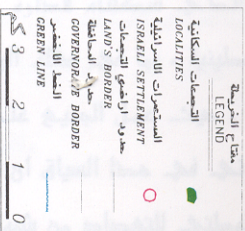 مفتاح الخريطة
LEGEND
التجمعات السكانية
LOCALITIES
المستعمرات الاسرائيلية
ISRAELI SETTLEMENT
حدود اراضي التجمعات
LAND'S BORDER
حدود المحافظة
GOVERNORATE BORDER
الخط الأخضر
GREEN LINE
3 2 1 0